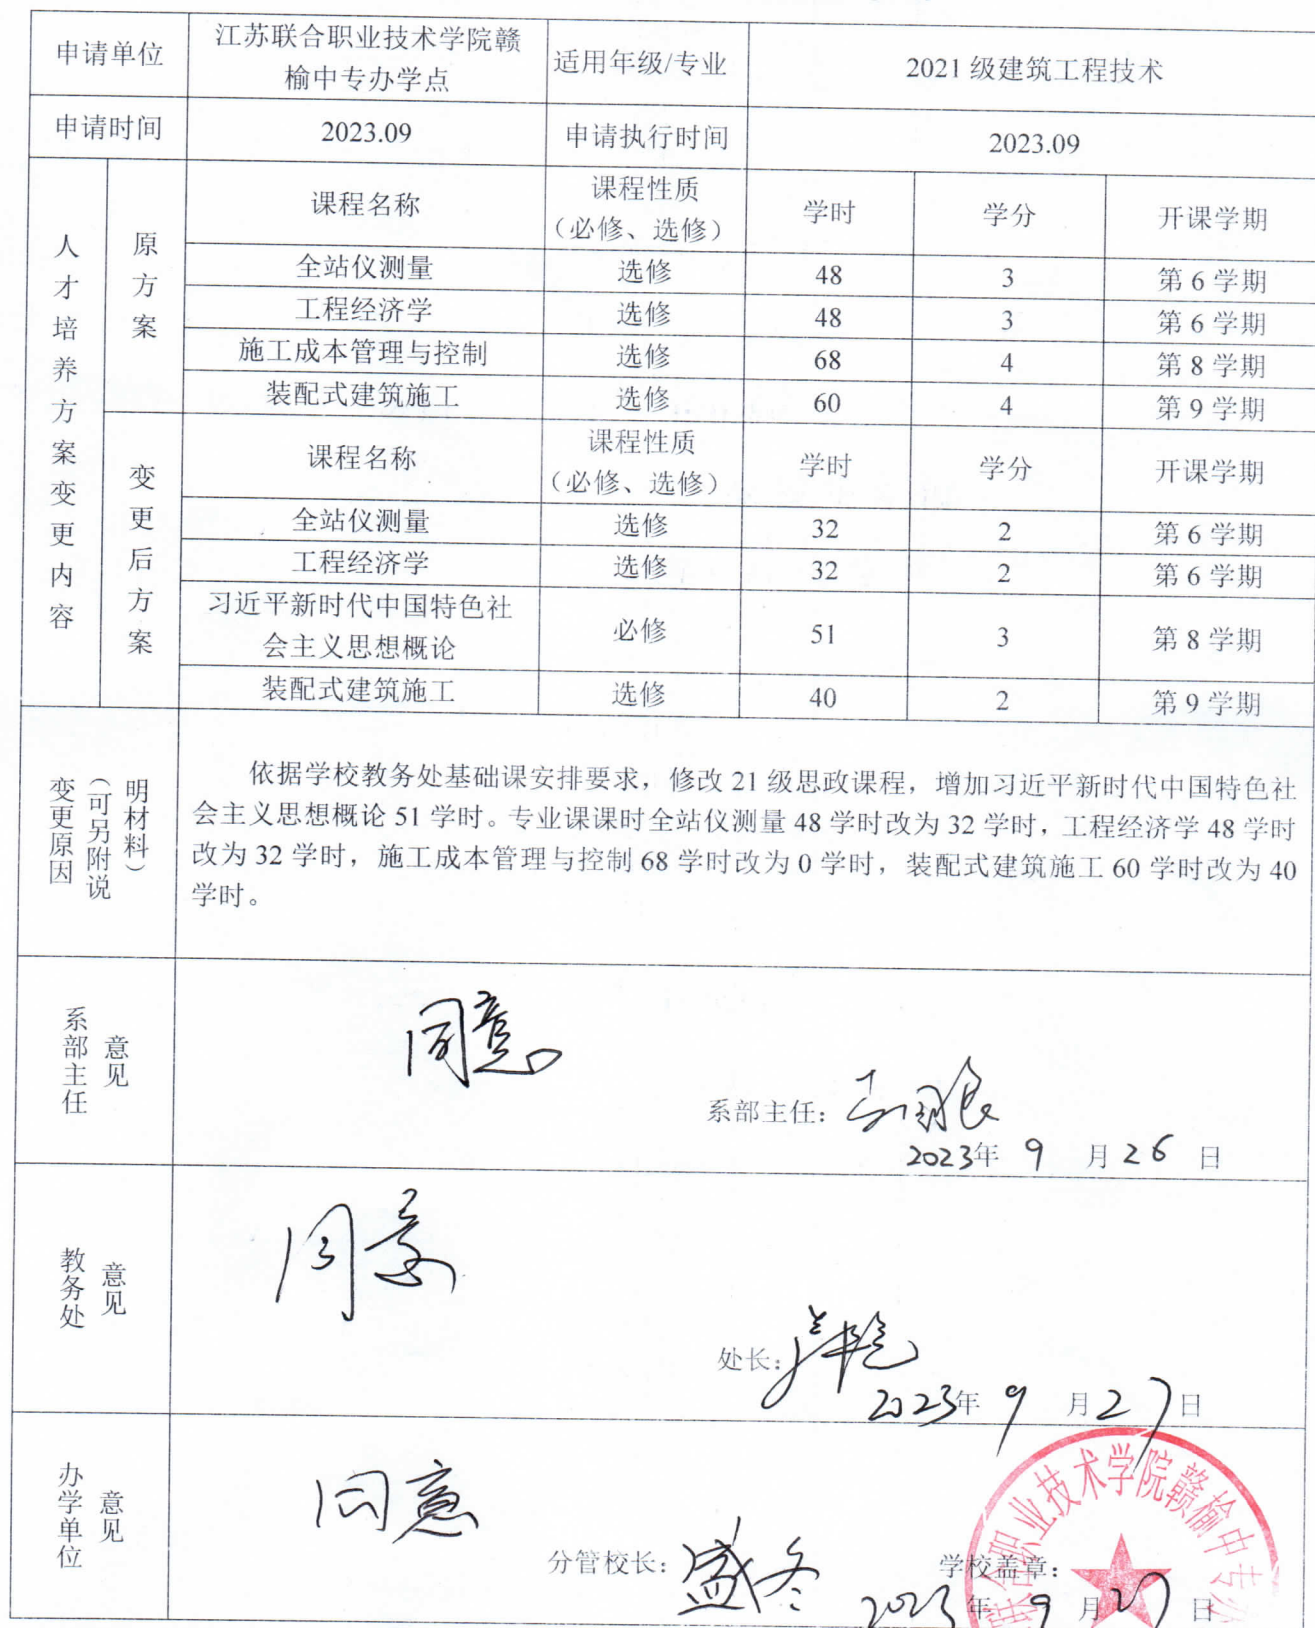 申请单位 江苏联合职业技术学院赣 适用年级/专业 2021 级建筑工程技术
榆中专办学点
申请时间 2023.09 申请执行时间 2023.09
人才培养方案变更内容
原方案
课程名称 课程性质 学时 学分 开课学期
（必修、选修）
全站仪测量 选修 48 3 第 6 学期
工程经济学 选修 48 3 第 6 学期
施工成本管理与控制 选修 68 4 第 8 学期
装配式建筑施工 选修 60 4 第 9 学期
变更后方案
课程名称 课程性质 学时 学分 开课学期
（必修、选修）
全站仪测量 选修 32 2 第 6 学期
工程经济学 选修 32 2 第 6 学期
习近平新时代中国特色社 必修 51 3 第 8 学期
会主义思想概论
装配式建筑施工 选修 40 2 第 9 学期
变更原因
（可另附说
明材料）
依据学校教务处基础课安排要求，修改 21 级思政课程，增加习近平新时代中国特色社
会主义思想概论 51 学时。专业课课时全站仪测量 48 学时改为 32 学时，工程经济学 48 学时
改为 32 学时，施工成本管理与控制 68 学时改为 0 学时，装配式建筑施工 60 学时改为 40
学时。
系部主任
意见
同意
系部主任：
2023年 9 月 26 日
教务处
意见
同意
处长：
2023年 9 月 27 日
办学单位
意见
同意
分管校长：盛冬 学校盖章：
2023 年 9 月 27 日
联合职业技术学院赣榆中专办